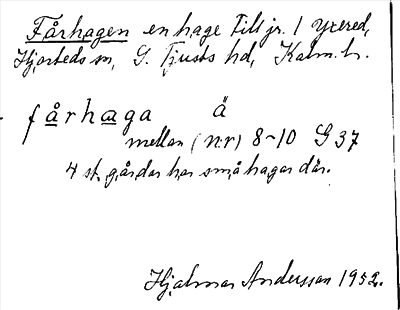 Fårhagen en hage till jr. 1 Yxered,
Hjorteds sn, S. Tjusts hd, Kalm. l.
fårhaga ä
mellan (n:r) 8-10 G 37
4 st. gårdar har små hagar där.
Hjalmar Andersson 1952.